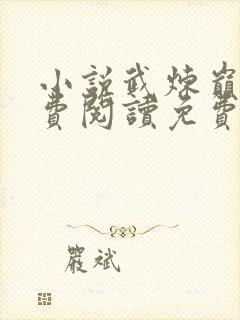 小說武煉巔
費閱讀免費
嚴斌